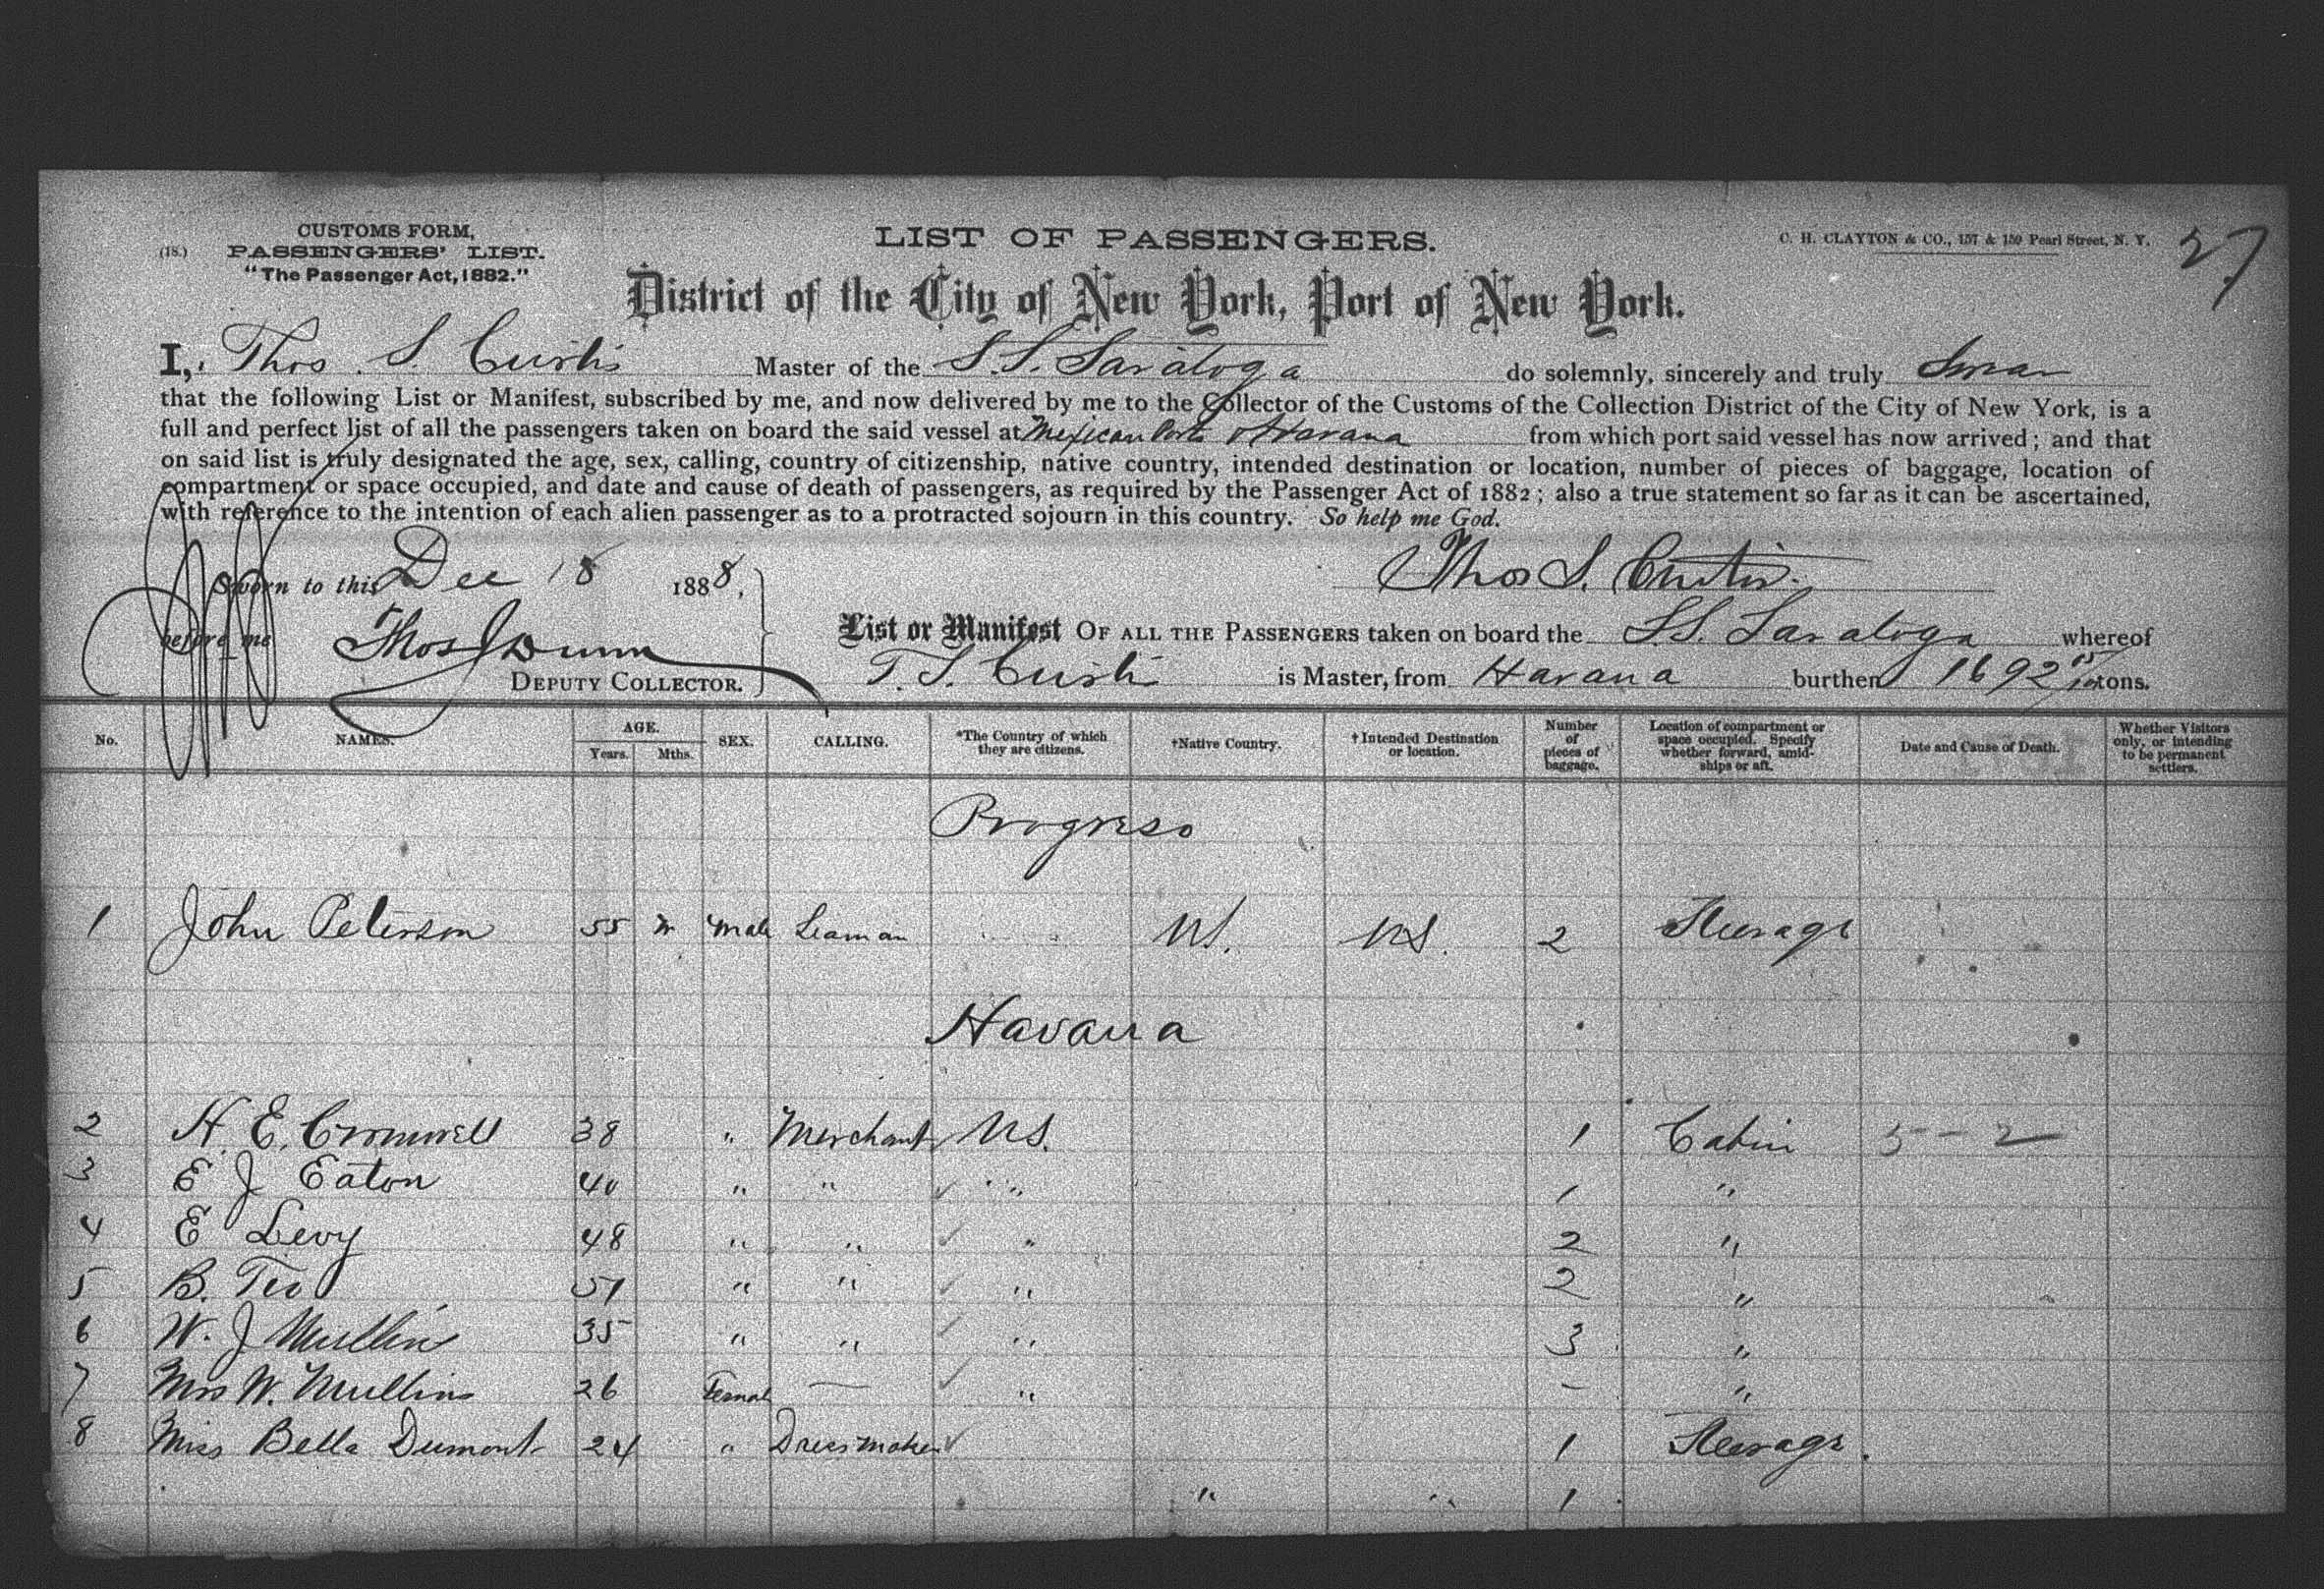 CUSTOMS FORM,
(18.) PASSENGERS' LIST.
"The Passenger Act, 1882."
LIST OF PASSENGERS.
C. H. CLAYTON & CO., 157 & 159 Pearl Street, N. Y.
27
District of the City of New York, Port of New York.
I, Thos. S. Curtis Master of the S.S. Saratoga do solemnly, sincerely and truly Swear
that the following List or Manifest, subscribed by me, and now delivered by me to the Collector of the Customs of the Collection District of the City of New York, is a
full and perfect list of all the passengers taken on board the said vessel at Mexican Ports & Havana from which port said vessel has now arrived; and that
on said list is truly designated the age, sex, calling, country of citizenship, native country, intended destination or location, number of pieces of baggage, location of
compartment or space occupied, and date and cause of death of passengers, as required by the Passenger Act of 1882; also a true statement so far as it can be ascertained,
with reference to the intention of each alien passenger as to a protracted sojourn in this country. So help me God.
Sworn to this Dec 18 1888, Thos S. Curtis
before me Thos J Dunn
DEPUTY COLLECTOR.
List or Manifest OF ALL THE PASSENGERS taken on board the S.S. Saratoga whereof
T. S. Curtis is Master, from Havana burthen 1692 tons.
No. NAMES. AGE. Years. Mths. SEX. CALLING. *The Country of which they are citizens. †Native Country. †Intended Destination or location. Number of pieces of baggage. Location of compartment or space occupied. Specify whether forward, amidships or aft. Date and Cause of Death. Whether Visitors only, or intending to be permanent settlers.
Progreso
1 John Peterson 55 m Male Seaman US. US. 2 Steerage
Havana
2 H. E. Cromwell 38 " Merchant US. 1 Cabin 5 - 2
3 E J Eaton 40 " " " 1 "
4 E Levy 48 " " " 2 "
5 B. Teo 51 " " " 2 "
6 W. J Mullin 35 " " " 3 "
7 Mrs W. Mullins 26 Female — " - "
8 Miss Bella Dumont 24 " Dressmaker 1 Steerage.
" " 1